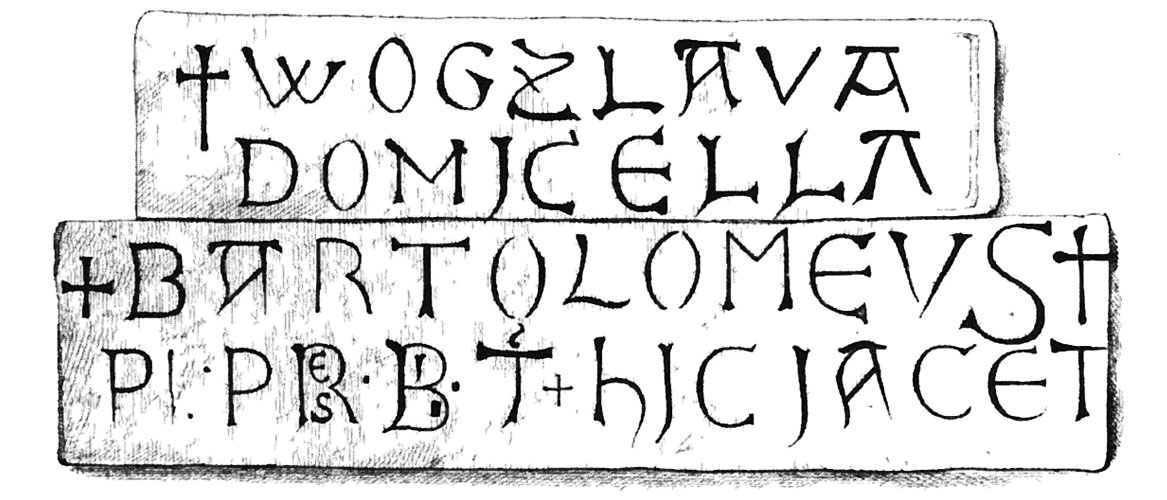 † WOGZLAVA
DOMJCELLA
+ BARTOLOMEVS †
PI · PRES · BI · T + hJC JACET